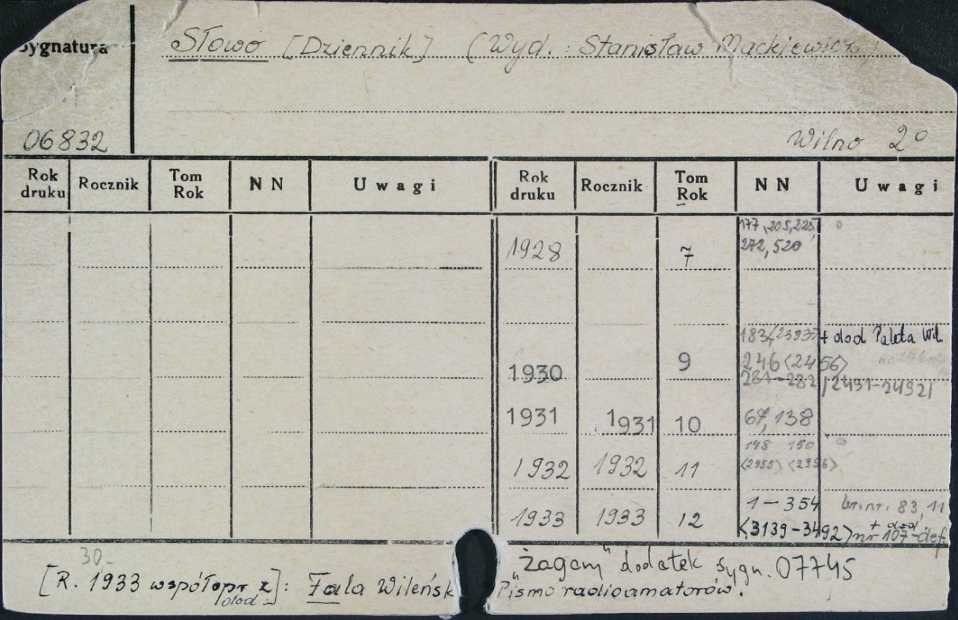 Sygnatura Słowo [Dziennik] (Wyd.: Stanisław Mackiewicz
06832 Wilno 2°
Rok druku Rocznik Tom Rok NN Uwagi Rok druku Rocznik Tom Rok NN Uwagi
177, 205, 225,
1928 7 272, 520
183/ + dod Paleta Wil
1930 9 246 (2456)
281-282 /2431-2492/
1931 1931 10 67, 138
148 150
1932 1932 11 (2955) (2956)
1933 1933 12 1-354 br. nr. 83, 11
(3139-3492) + dod nr 107-def
30- "Żagary" dodatek sygn. 07745
[R. 1933 współopr z dod]: Fala Wileńsk Pismo radioamatorów.